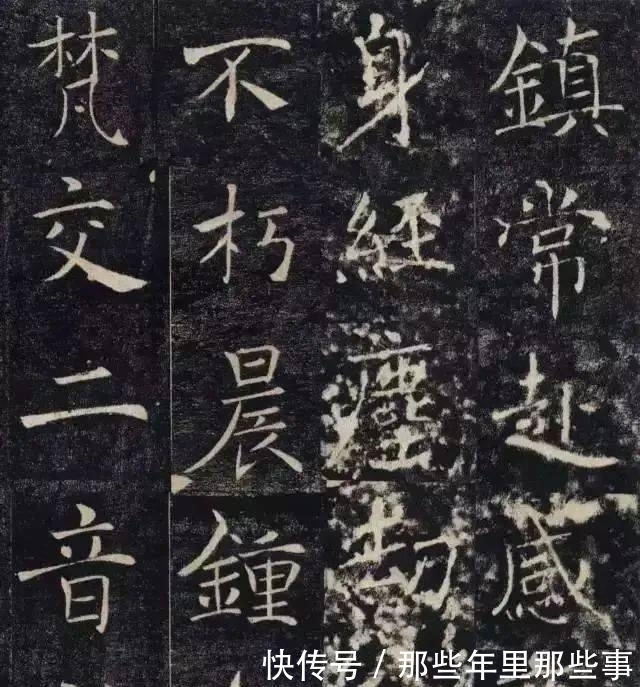 鎮常赴感
身經塵劫
不朽晨鐘
梵交二音
快传号 / 那些年里那些事